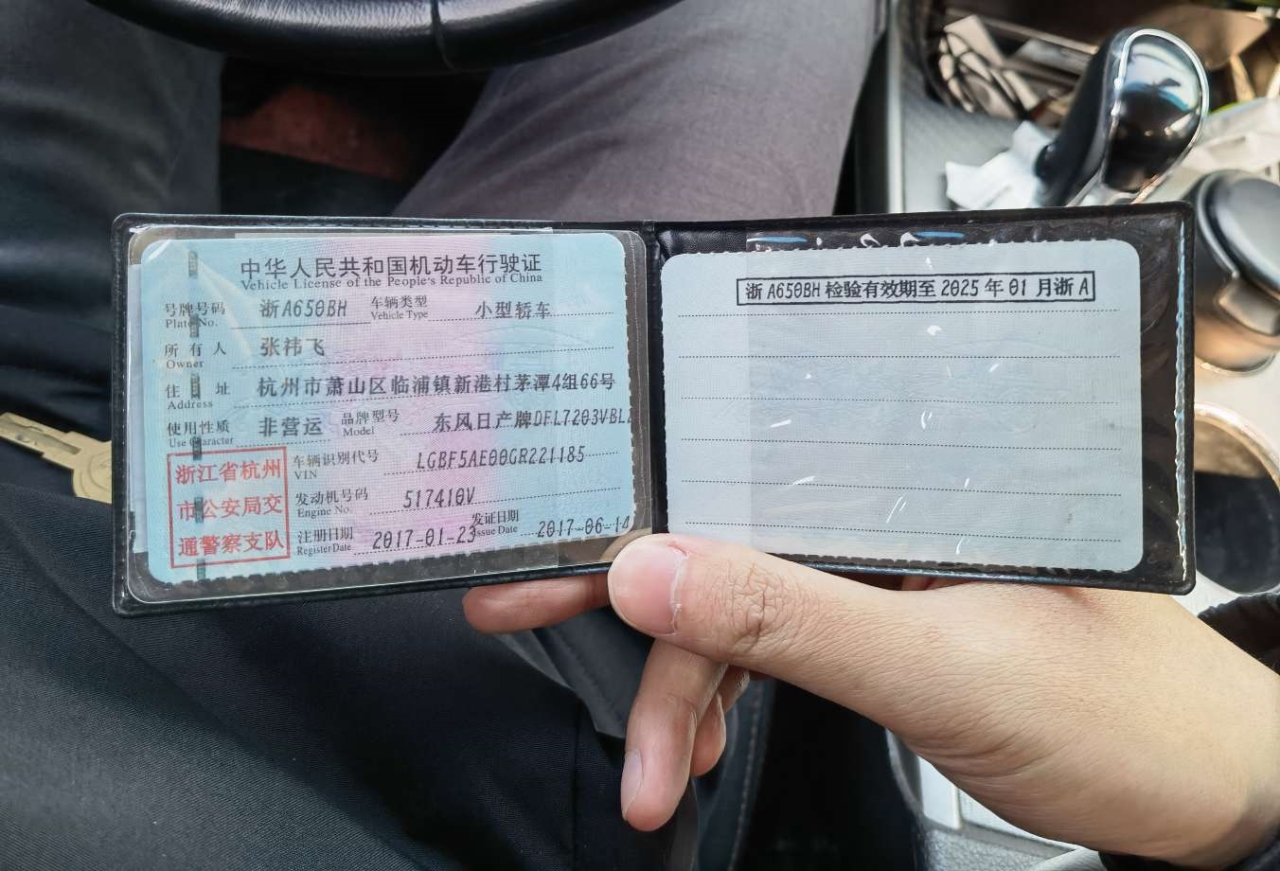 中华人民共和国机动车行驶证
Vehicle License of the People's Republic of China
号牌号码 浙A650BH 车辆类型 小型轿车
Plate No. Vehicle Type
所有人 张祎飞
Owner
住址 杭州市萧山区临浦镇新港村茅潭4组66号
Address
使用性质 非营运 品牌型号 东风日产牌DFL7203VBL
Use Character Model
浙江省杭州
市公安局交
通警察支队
车辆识别代号 LGBF5AE00GR221185
VIN
发动机号码 517410V
Engine No.
注册日期 2017-01-23 发证日期 2017-06-14
Register Date Issue Date
浙A650BH检验有效期至2025年01月浙A